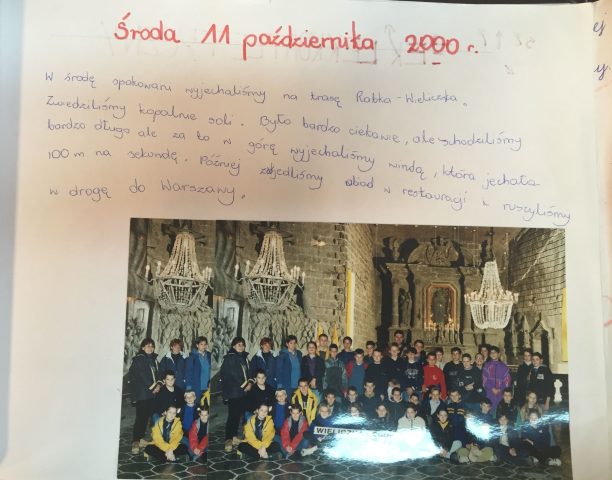 Środa 11 października 2000 r.
W środę spakowani wyjechaliśmy na trasę Rabka-Wieliczka.
Zwiedziliśmy kopalnie soli. Było bardzo ciekawie, ale schodziliśmy
bardzo długo ale za to w górę wyjechaliśmy windą, która jechała
100 m na sekundę. Później zjedliśmy obiad w restauragi i ruszyliśmy
w drogę do Warszawy.
WIELICZKA